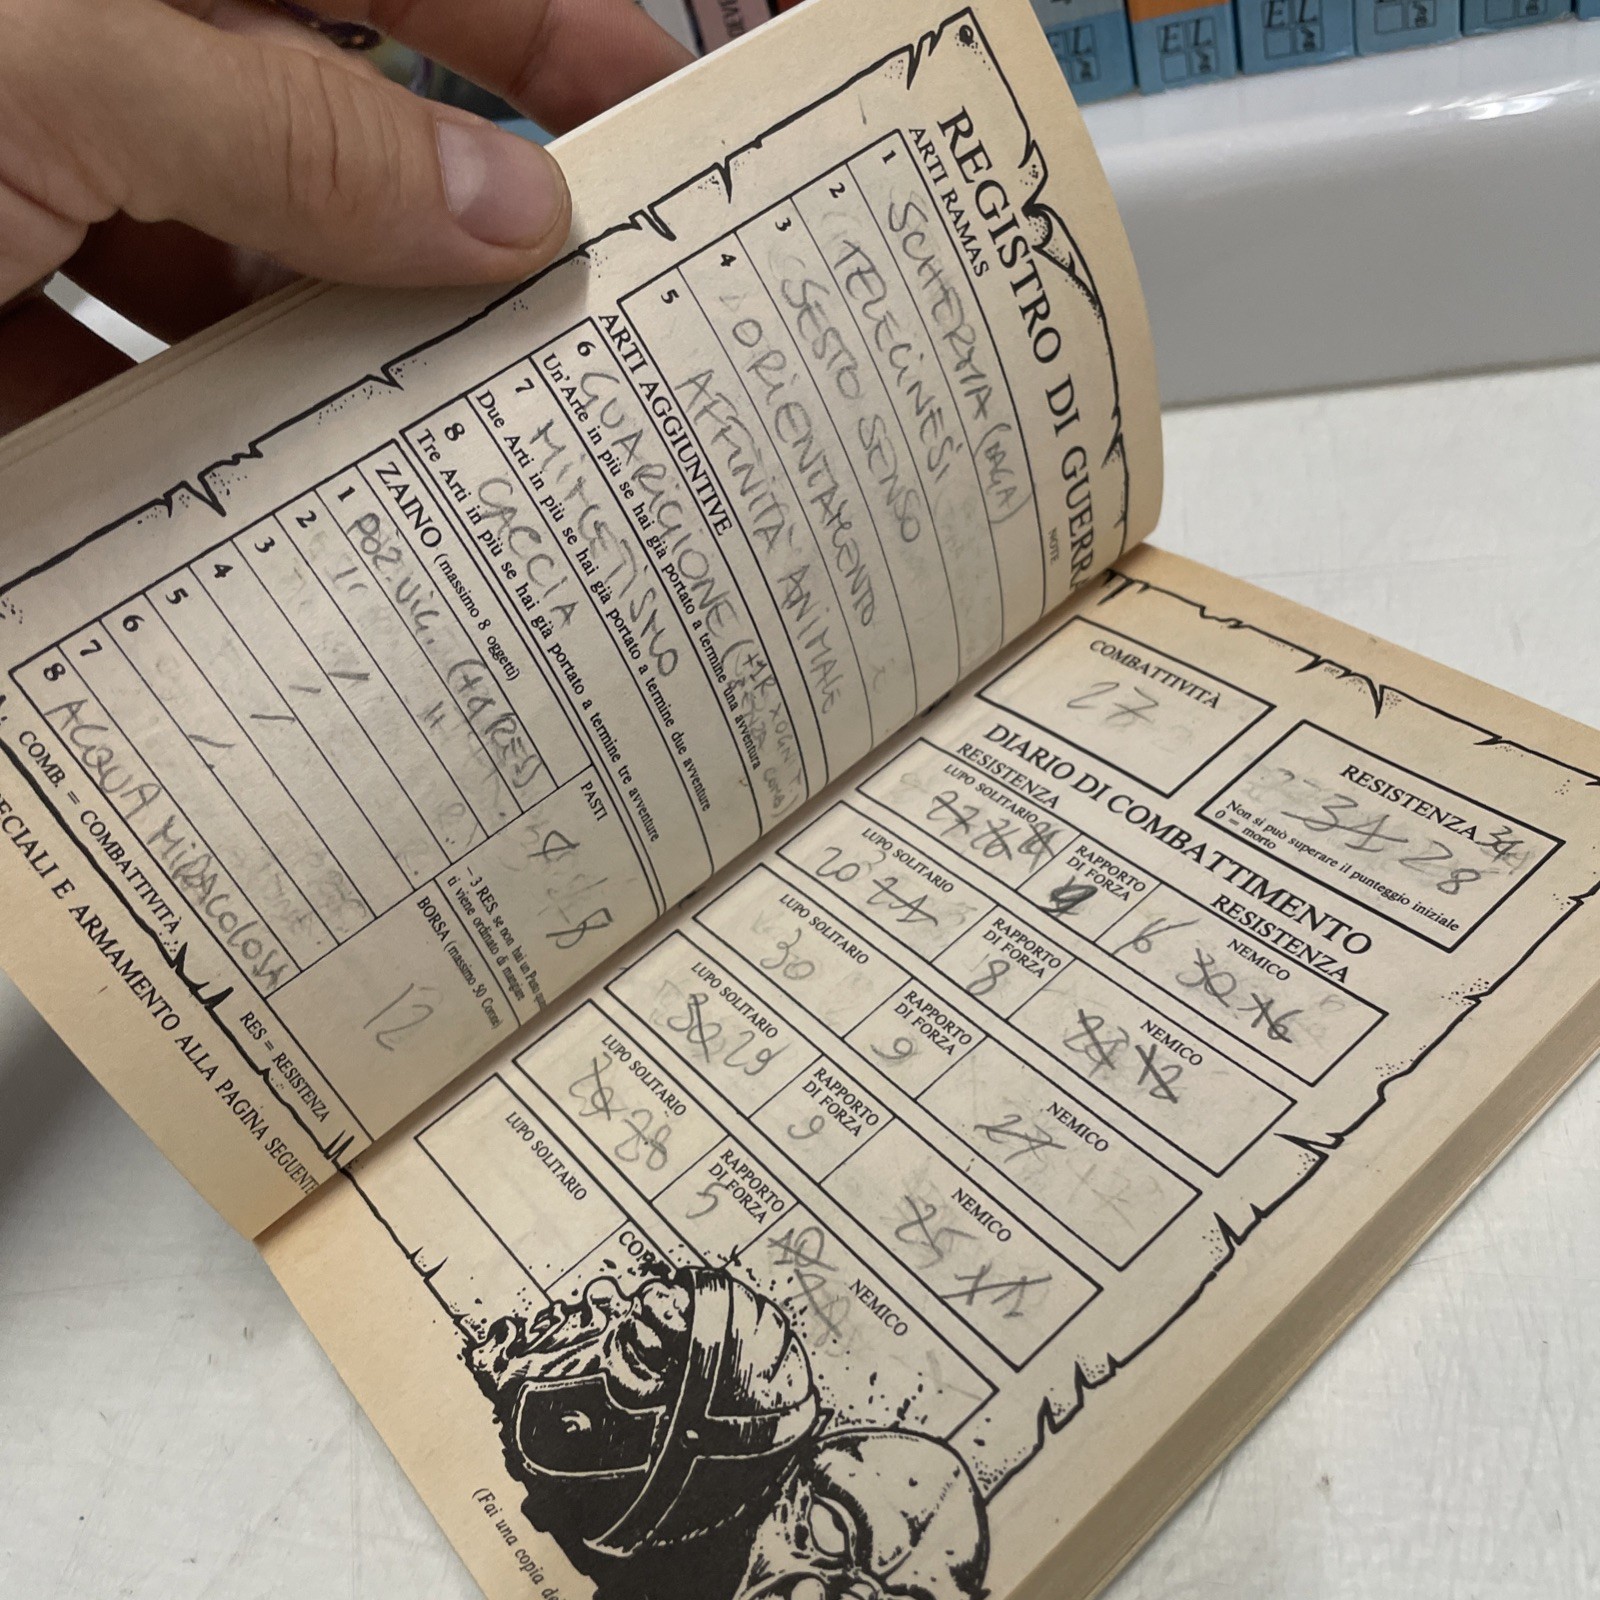 REGISTRO DI GUERRA
NOTE
ARTI RAMAS
1 SCHERMA (DAGA)
2 TELECINESI
3 SESTO SENSO
4 ORIENTAMENTO
5 AFFINITÀ ANIMALE
ARTI AGGIUNTIVE
6 GUARIGIONE
Un'Arte in più se hai già portato a termine una avventura
7 MIMETISMO
Due Arti in più se hai già portato a termine due avventure
8 CACCIA
Tre Arti in più se hai già portato a termine tre avventure
ZAINO (massimo 8 oggetti)
1 POZ. VIG. (+4 RES)
2
3
4
5
6
7
8 ACQUA MIRACOLOSA
PASTI
8
– 3 RES. se non hai un Pasto
ti viene ordinato di mangiare
BORSA (massimo 50 Corone)
12
COMB. = COMBATTIVITÀ
RES = RESISTENZA
SPECIALI E ARMAMENTO ALLA PAGINA SEGUENTE
COMBATTIVITÀ
27
RESISTENZA 34
31 28
Non si può superare il punteggio iniziale
0 = morto
DIARIO DI COMBATTIMENTO
RESISTENZA
RESISTENZA
LUPO SOLITARIO
27 26
RAPPORTO
DI FORZA
9
NEMICO
30 16
LUPO SOLITARIO
20 21
RAPPORTO
DI FORZA
8
NEMICO
12
LUPO SOLITARIO
30
RAPPORTO
DI FORZA
9
NEMICO
27
LUPO SOLITARIO
30 29
RAPPORTO
DI FORZA
9
NEMICO
25 11
LUPO SOLITARIO
29 28
RAPPORTO
DI FORZA
5
NEMICO
40
LUPO SOLITARIO
(Fai una copia